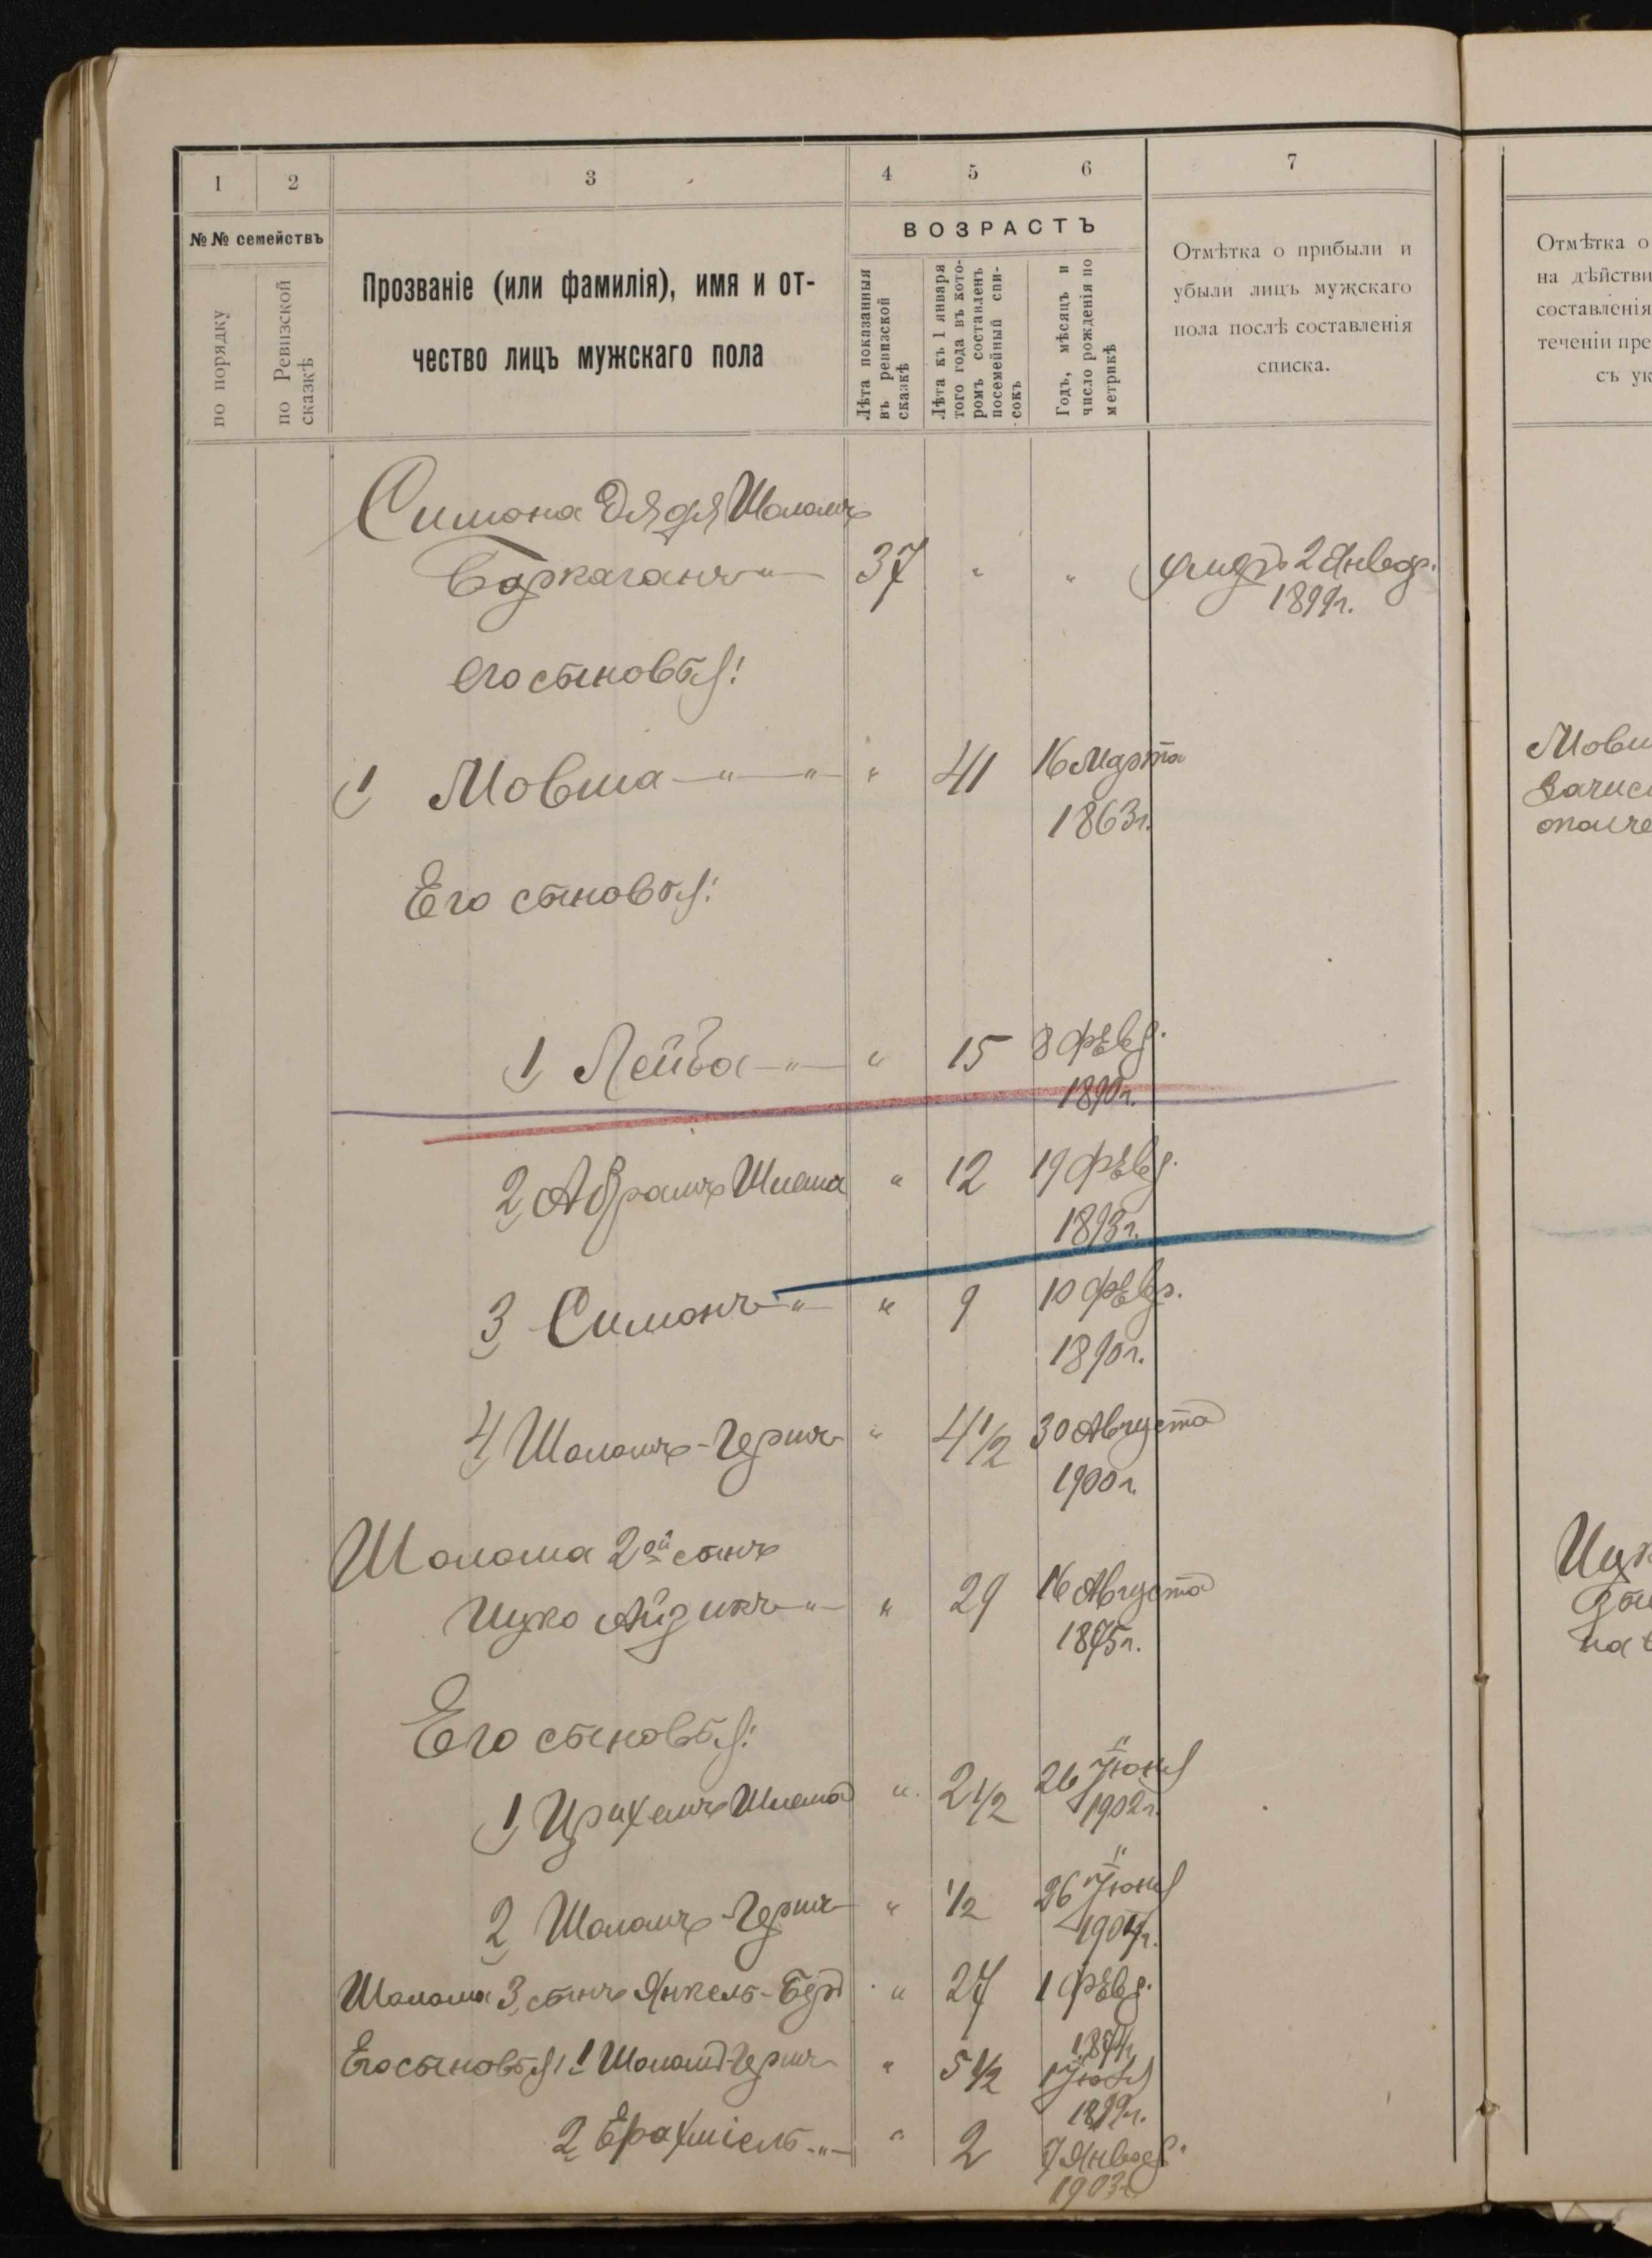 1 2 3 4 5 6 7
№№ семействъ
по порядку
по Ревизской сказкѣ
Прозваніе (или фамилія), имя и от-
чество лицъ мужскаго пола
ВОЗРАСТЪ
Лѣта показанныя
въ ревизской
сказкѣ
Лѣта къ 1 января
того года въ кото-
ромъ составленъ
посемейный спи-
сокъ
Годъ, мѣсяцъ и
число рожденія по
метрикѣ
Отмѣтка о прибыли и
убыли лицъ мужскаго
пола послѣ составленія
списка.
Симона дядя Шоломъ
Баркаганъ 37 " " 2 Январ.
1899г.
его сыновья:
1 Мовша " " " 41 16 Марта
1863г.
Его сыновья:
1 Лейба " " 15 8 Февр.
1890г.
2 Абрамъ Шлема " 12 19 Февр.
1893г.
3 Симонъ " " 9 10 Февр.
4 Шоломъ-Гершъ " 4 1/2 30 Августа
1900г.
Шолома 2ой сынъ
Ицко Айзикъ " " 29 16 Августа
1875г.
Его сыновья:
1 Шлема " 2 1/2 26 Іюня
1902г.
2 Шоломъ-Гершъ " 1/2 26 Іюня
1904г.
Шолома 3 сынъ Янкель-Беръ " 27 1 Февр.
Его сыновья: 1 Шоломъ-Гершъ " 5 1/2
1899г.
2 Ерахміель " " 2 7 Январ.
1903г.
Отмѣтка о
на дѣйстви
составленія
теченіи пре
съ ук
Мовш
Зачис
ополче
Ицк
на